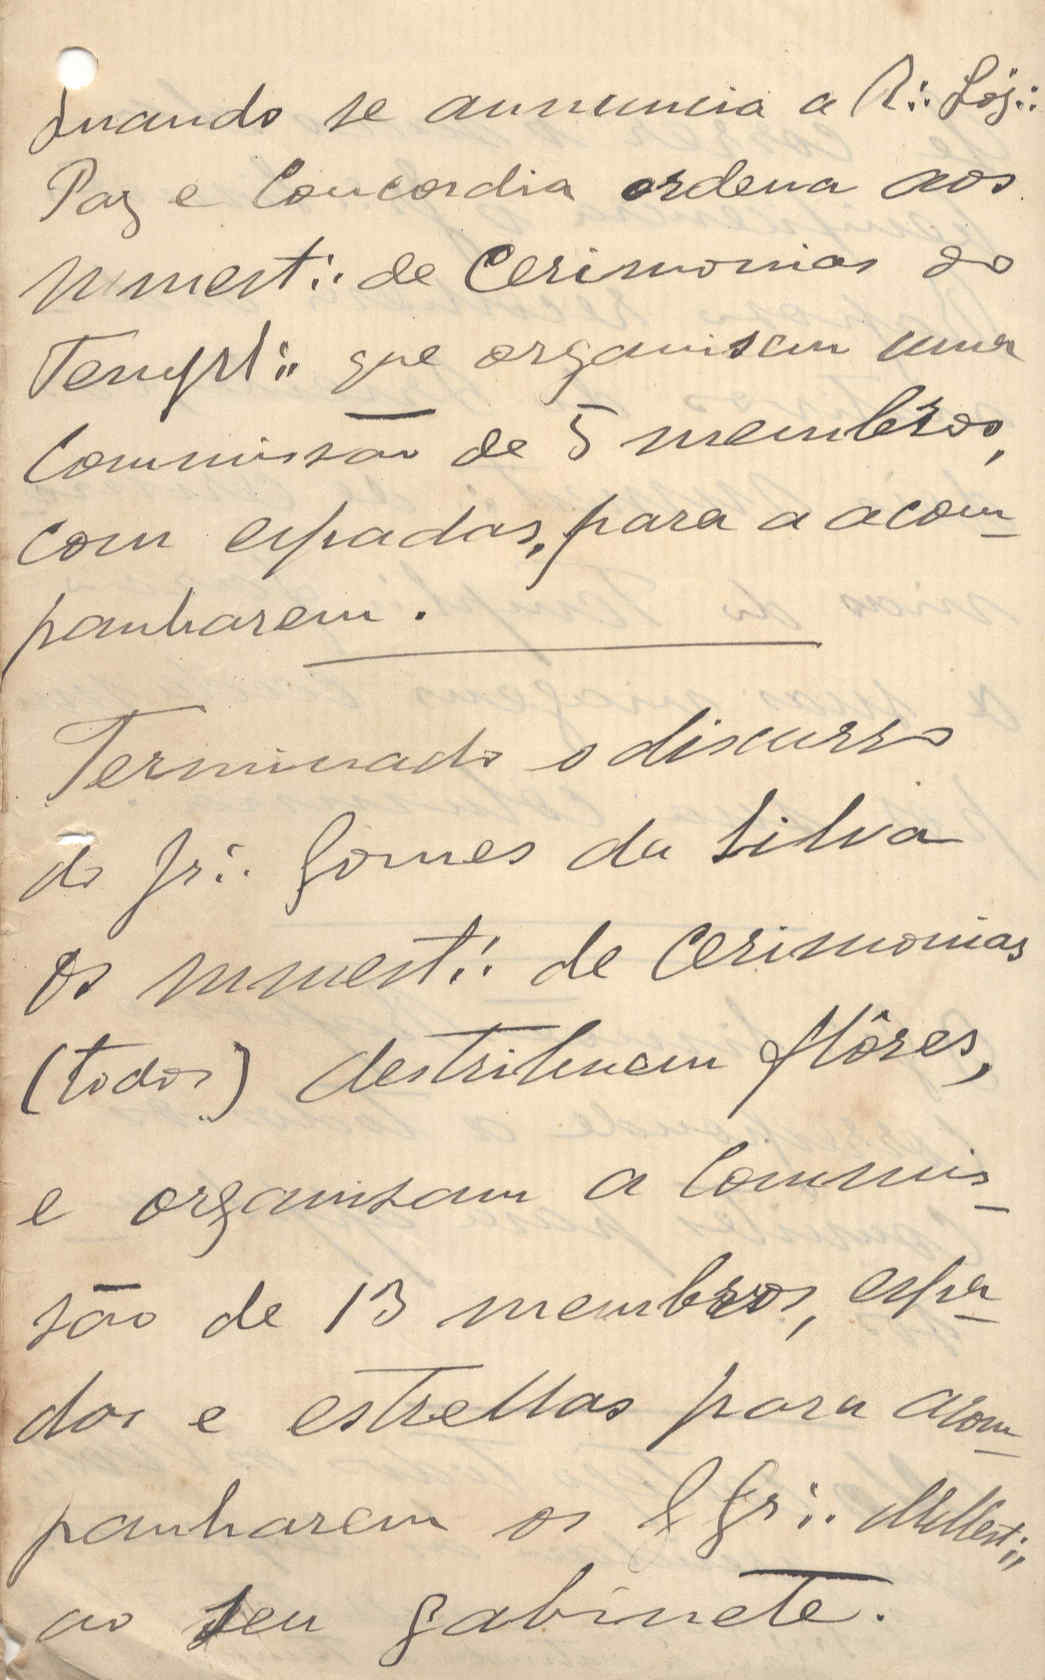 Quando se annuncia a R∴ Loj∴
Paz e Concordia ordena aos
mmest∴ de Cerimonias do
Templ∴ que organisem uma
Commissão de 5 membros,
com espadas, para a acom-
panharem.
Terminado o discurso
do Ir∴ Gomes da Silva
os mmest∴ de Cerimonias
(todos) destribuem flôres,
e organisam a Commis-
são de 13 membros, espa-
das e estrellas para acom-
panharem os GGr∴ MMest∴
ao seu gabinete.